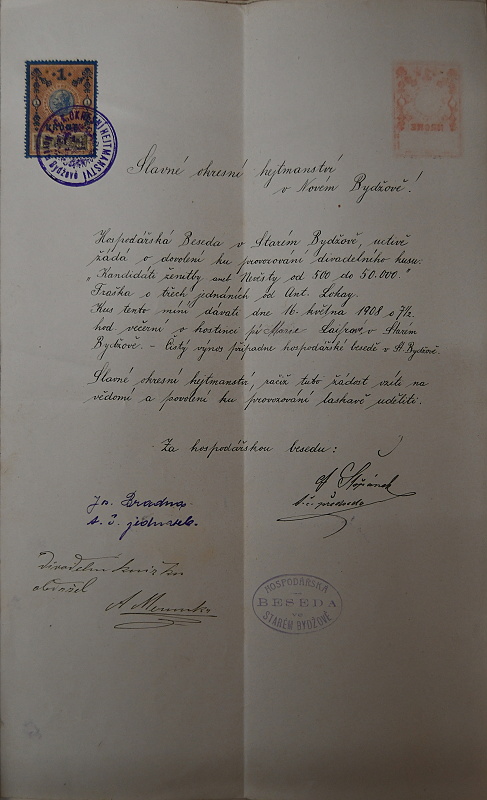 1
OKRESNÍ HEJTMANSTVÍ
Slavné okresní hejtmanství
v Novém Bydžově!
Hospodářská Beseda v Starém Bydžově, uctivě
žádá o dovolení ku provozování divadelního kusu.
„Kandidáti ženitby aneb Nevěsty od 500 do 50.000."
Fraška o třech jednáních od Ant. Lokay.
Kus tento míní dávati dne 16. května 1908 o 7½
hod večerní v hostinci p. Starém
Bydžově. – Čistý výnos připadne hospodářské besedě v St. Bydžově.
Slavné okresní hejtmanství, račiž tuto žádost vzíti na
vědomí a povolení ku provozování laskavě uděliti.
Za hospodářskou besedu:
t. č. předseda
t. č. jednatel.
Divadelní knížku
obdržel
HOSPODÁŘSKÁ
BESEDA
STARÉM BYDŽOVĚ